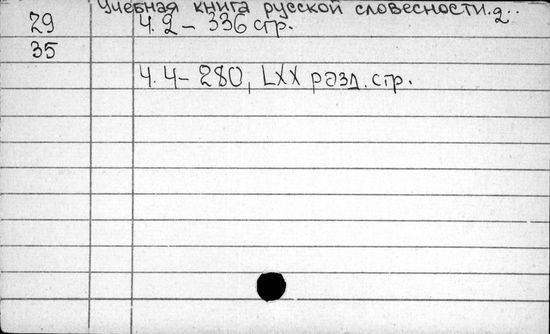 Учебная книга русской словесности. 2..
29 Ч. 2 - 336 стр.
35
Ч. 4 - 280, LXX разд. стр.